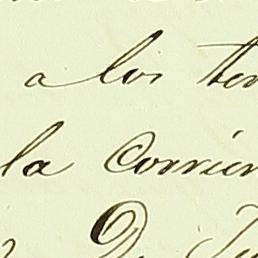 a los ter
la Corrien
D.